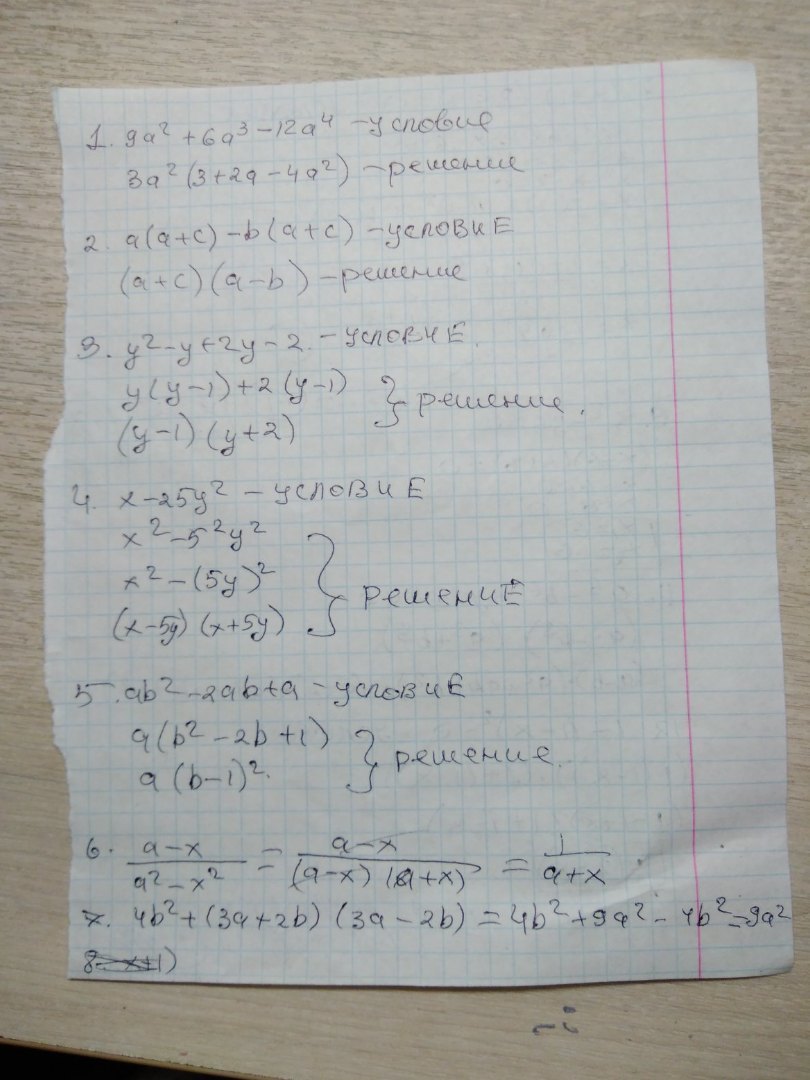 1. 9a² + 6a³ - 12a⁴ - условие
3a² (3 + 2a - 4a²) - решение
2. a(a+c) - b(a+c) - условиЕ
(a+c) (a-b) - решение
3. y² - y + 2y - 2. - условиЕ.
y(y-1) + 2(y-1)
(y-1) (y+2)
} решение.
4. x - 25y² - условиЕ
x² - 5²y²
x² - (5y)²
(x-5y) (x+5y)
} решениЕ
5. ab² - 2ab + a - условиЕ
a(b² - 2b + 1)
a (b-1)².
} решение.
6. (a-x)/(a²-x²) = (a-x)/((a-x)(a+x)) = 1/(a+x)
7. 4b² + (3a+2b) (3a-2b) = 4b² + 9a² - 4b² = 9a²